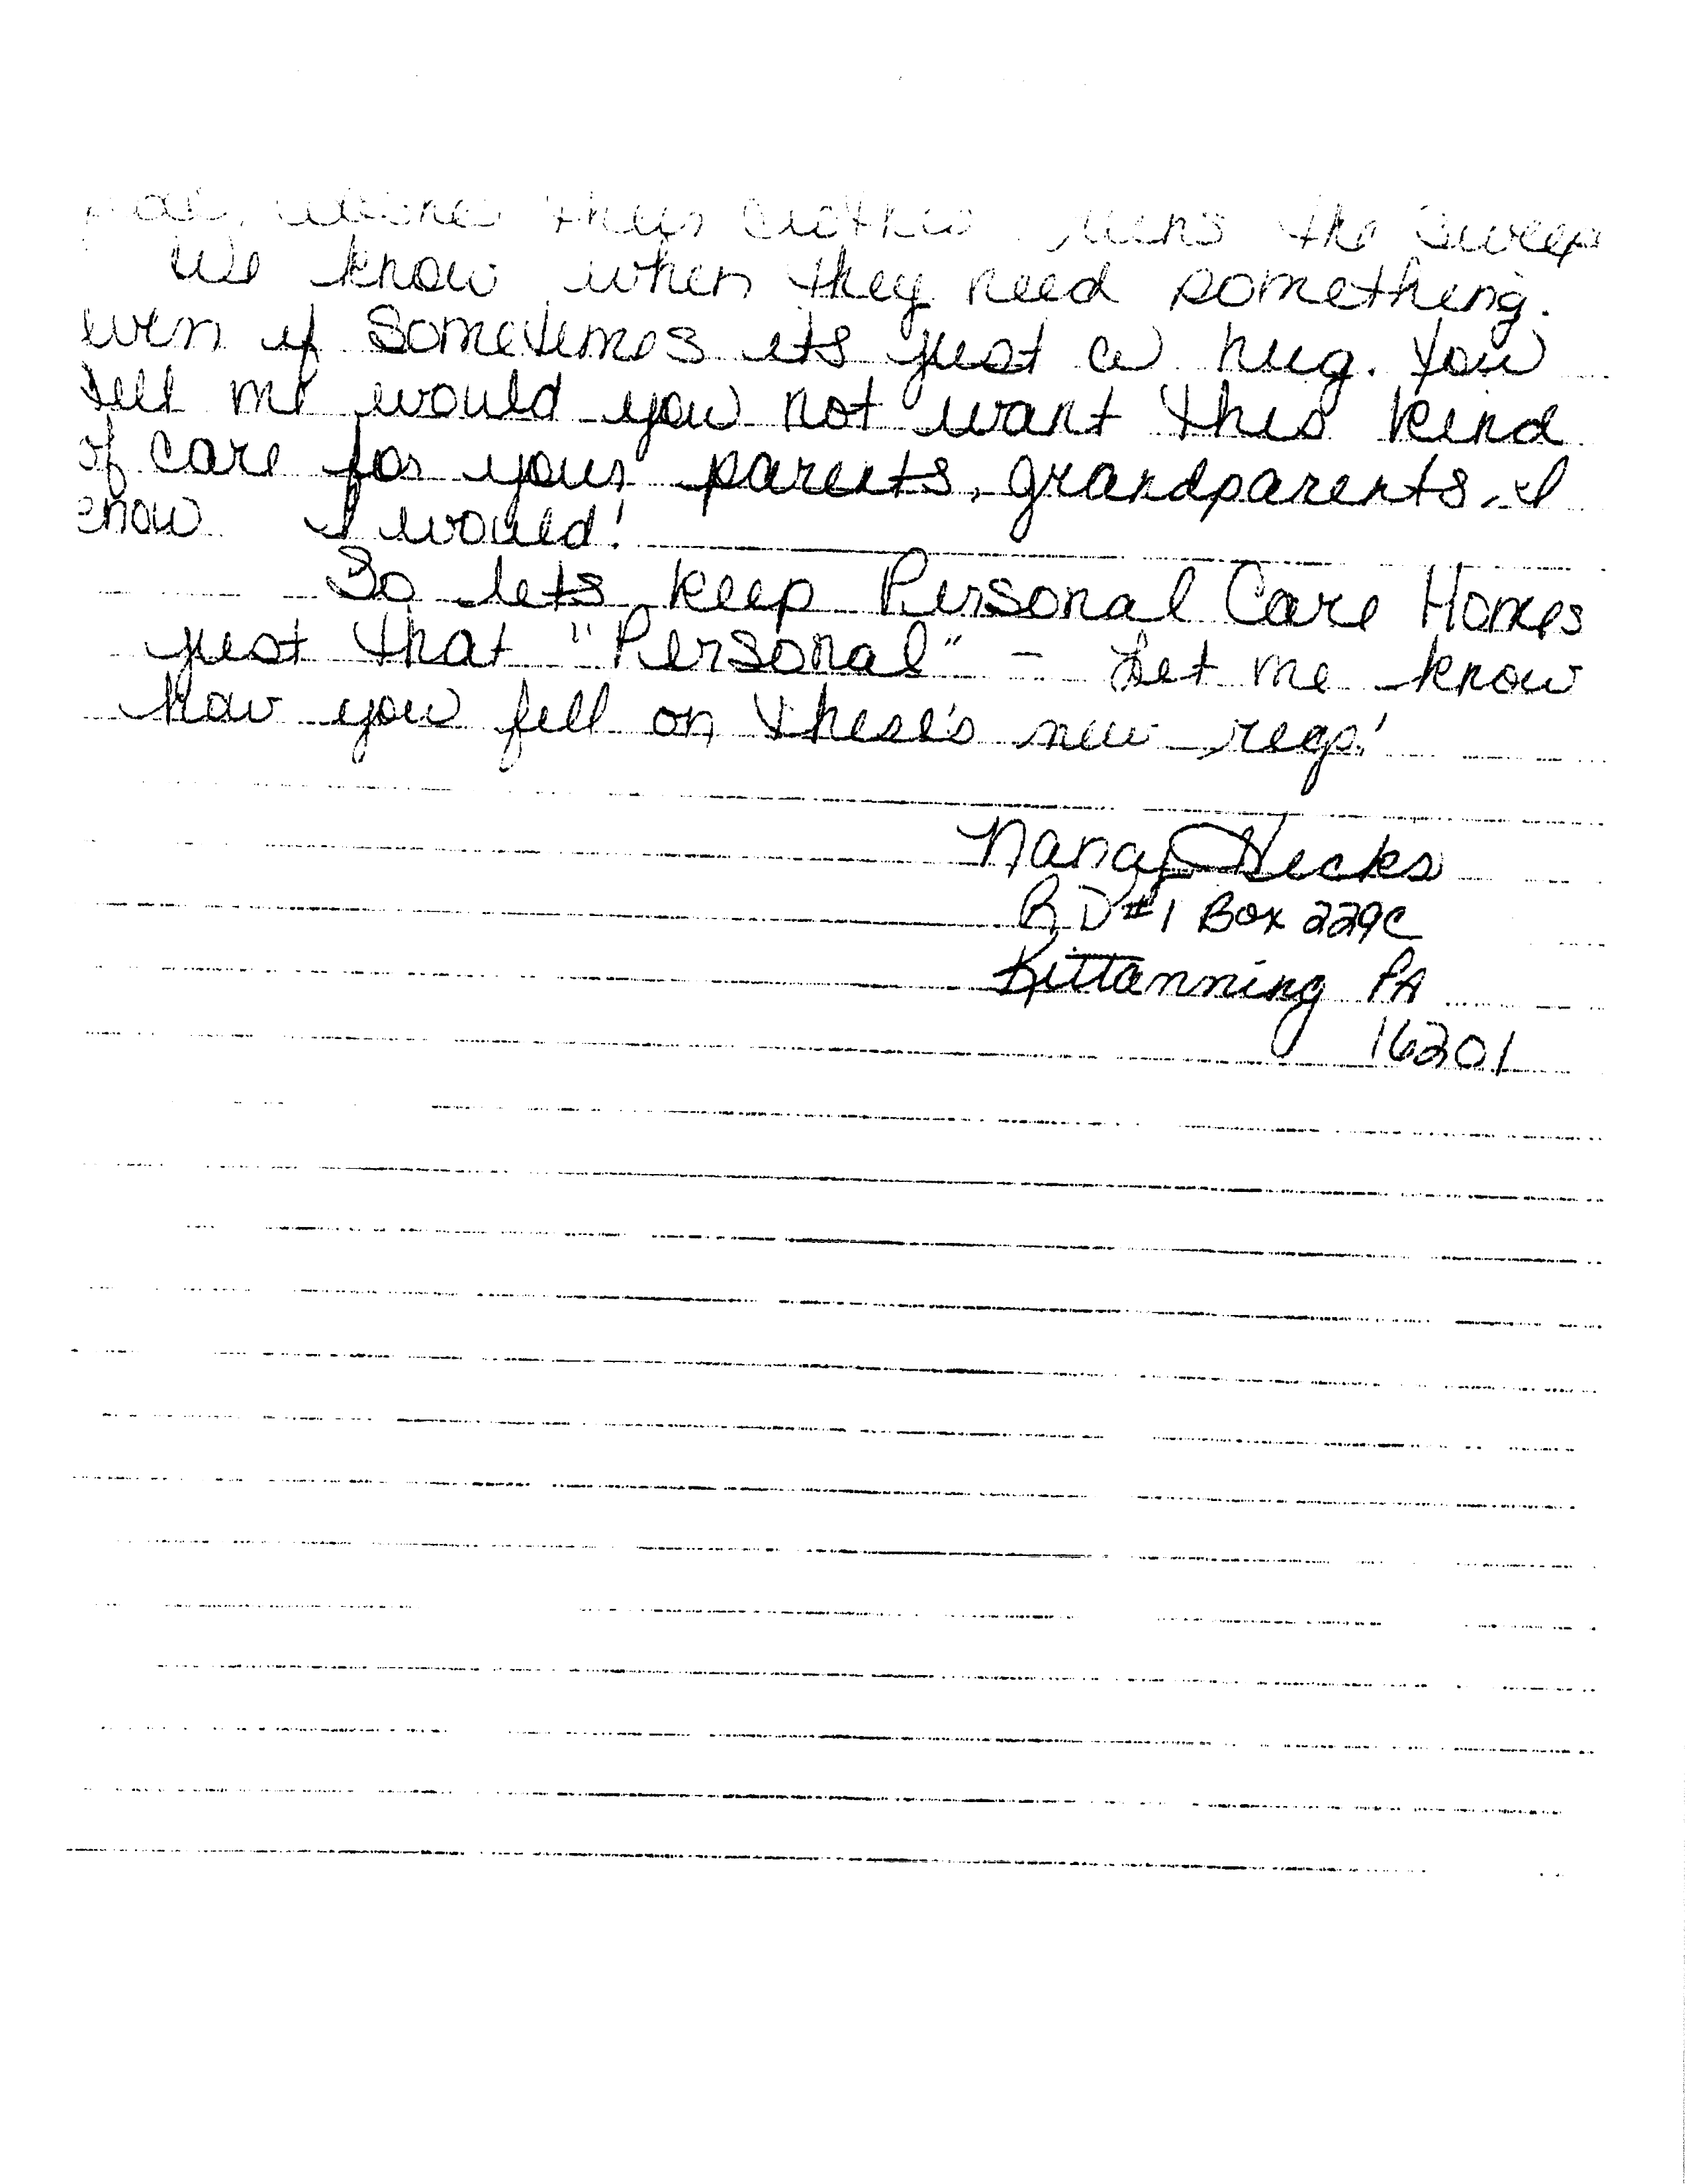 their clothes runs the sweep
We know when they need something.
even if sometimes its just a hug. You
tell me would you not want this kind
of care for your parents, grandparents, I
know I would!
So lets keep Personal Care Homes
just that "Personal" - Let me know
how you fell on these's new regs!
Nancy Hicks
RD #1 Box 229C
Kittanning PA
16201